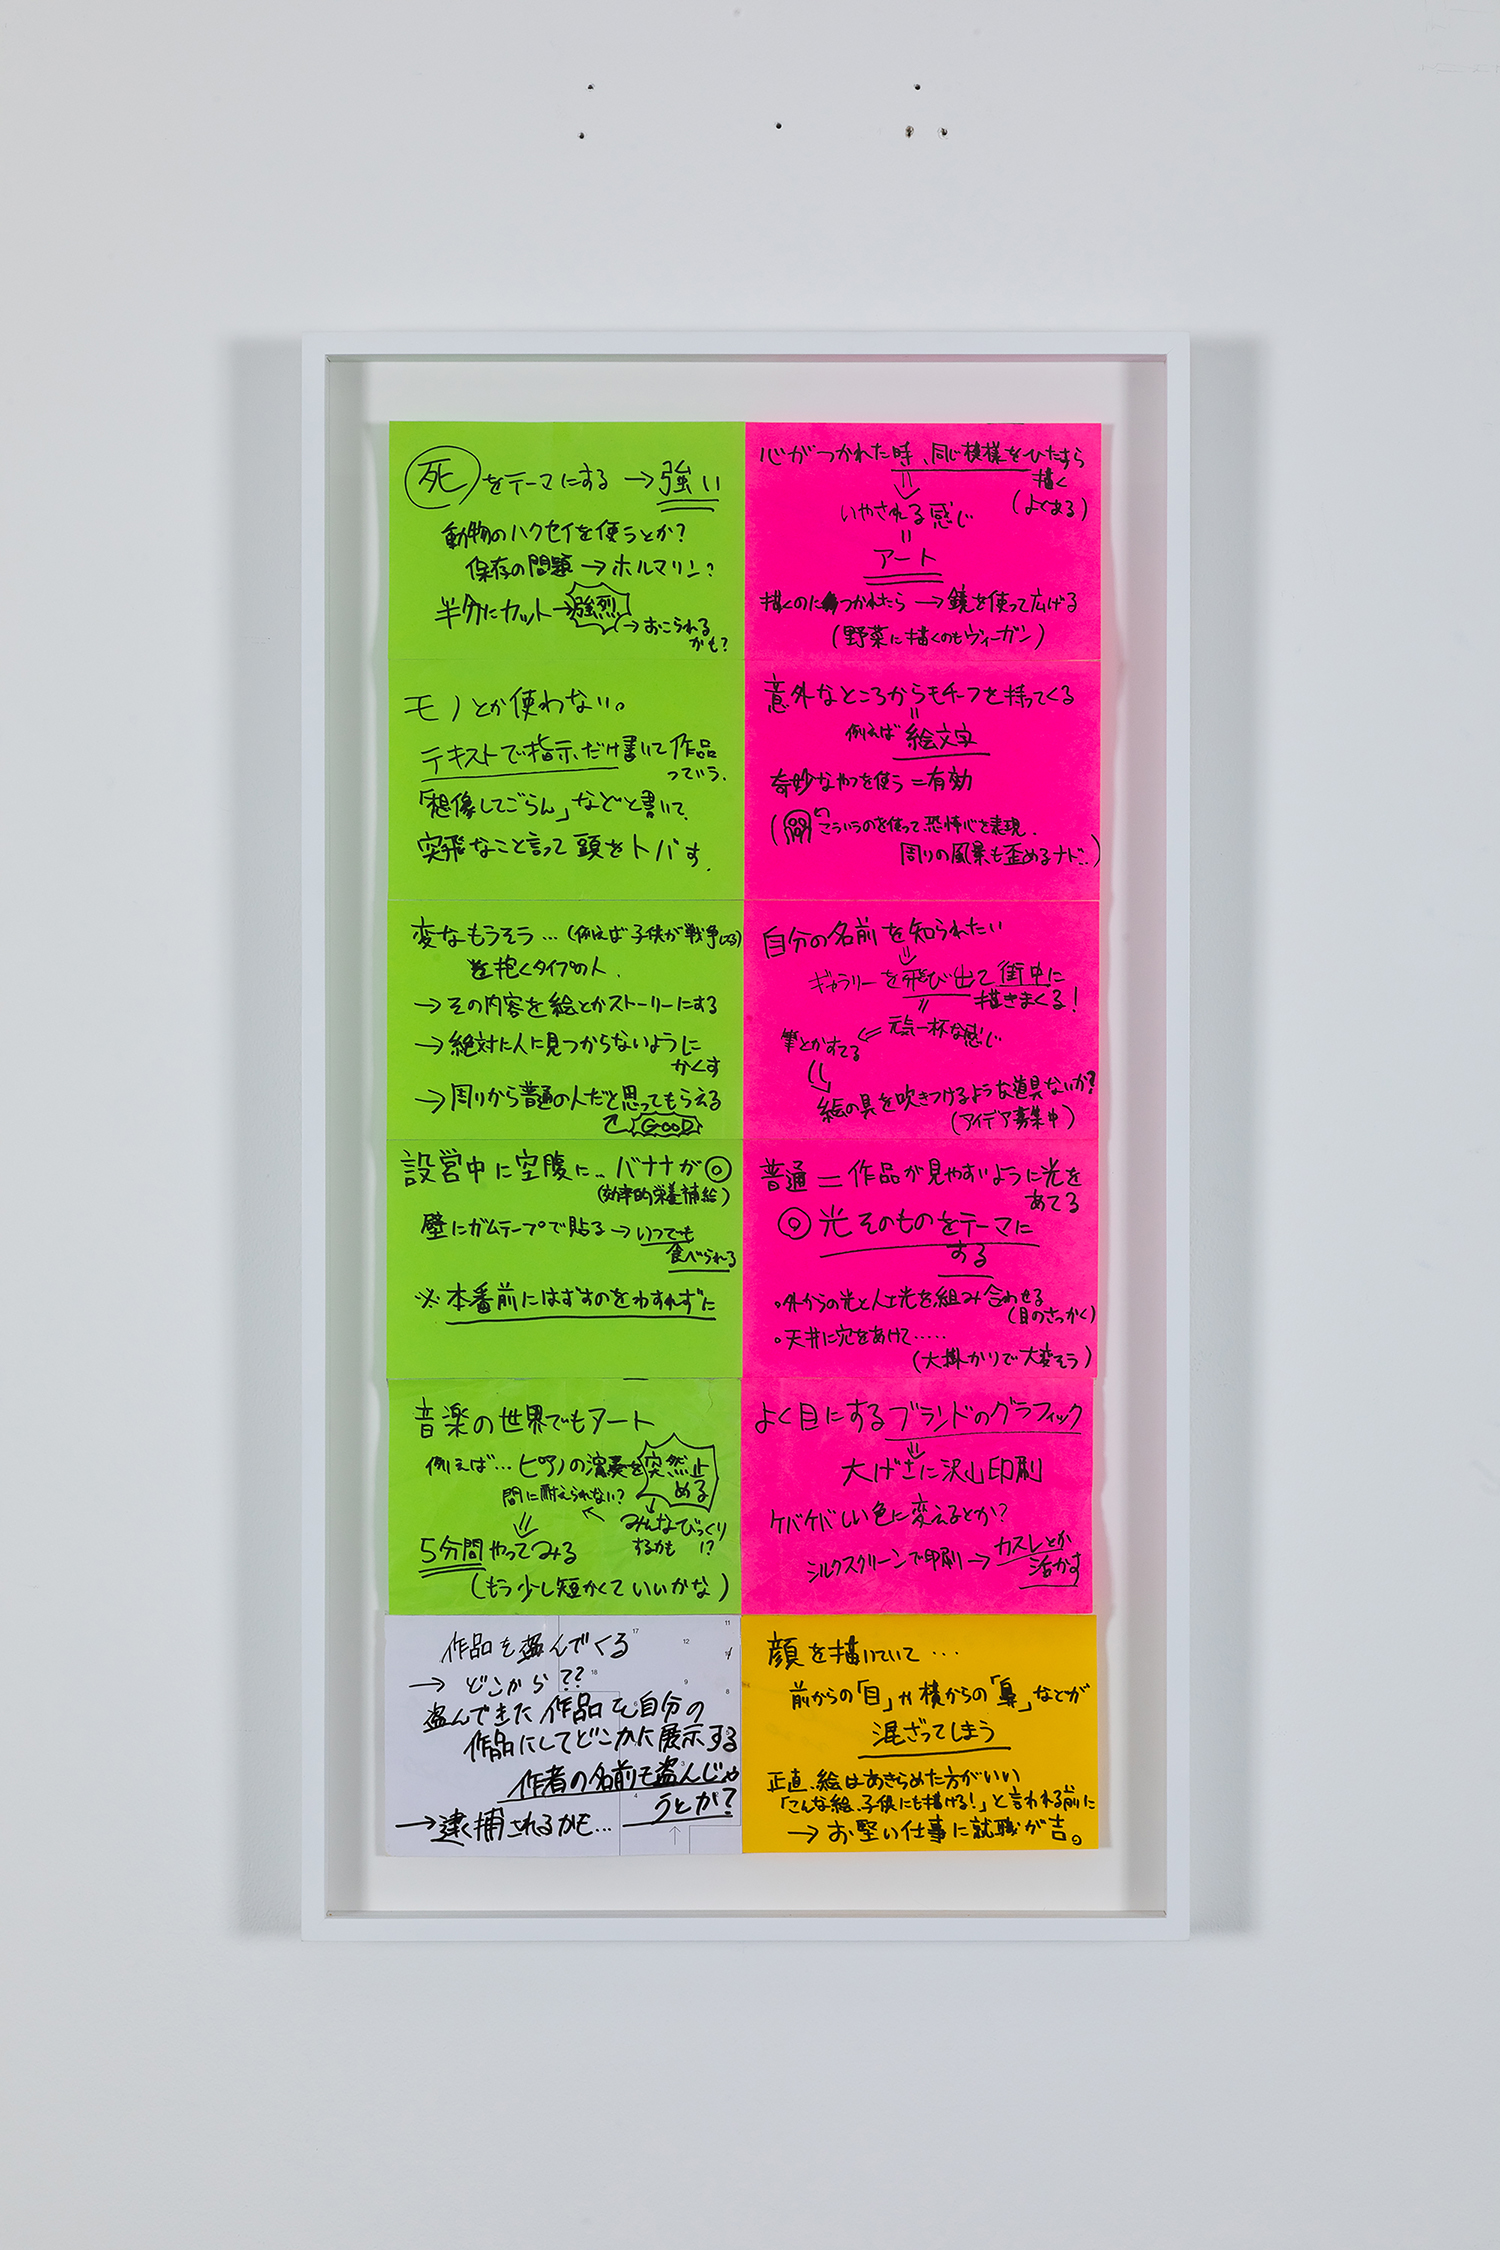 死をテーマにする→強い
動物のハクセイを使うとか？
保存の問題→ホルマリン？
半分にカット→強烈
→おこられる
かも？
モノとか使わない。
テキストで指示だけ書いて作品
っていう.
「想像してごらん」などと書いて
突飛なこと言って頭をトバす.
変なもうそう…(例えば子供が戦争する)
を抱くタイプの人.
→その内容を絵とかストーリーにする
→絶対に人に見つからないように
かくす
→周りから普通の人だと思ってもらえる
GOOD
設営中に空腹に…バナナが◎
(効率的栄養補給)
壁にガムテープで貼る→いつでも
食べられる
※本番前にはずすのをわすれずに
音楽の世界でもアート
例えば…ピアノの演奏を突然止
める
間に耐えられない？
みんなびっくり
するかも!?
5分間やってみる
(もう少し短かくていいかな)
作品を盗んでくる
→どこから??
盗んできた作品を自分の
作品にしてどこかに展示する
作者の名前も盗んじゃ
うとか？
→逮捕されるかも…
17
11
12
18
9
8
6
3
4
心がつかれた時、同じ模様をひたすら
描く
(よくある)
いやされる感じ
=
アート
描くのにつかれたら→鏡を使って広げる
(野菜に描くのもヴィーガン)
意外なところからモチーフを持ってくる
=
例えば絵文字
奇妙なやつを使う=有効
(こういうのを使って恐怖心を表現.
周りの風景も歪めるナド…)
自分の名前を知られたい
ギャラリーを飛び出て街中に
描きまくる！
=
元気一杯な感じ
筆とかすてる
絵の具を吹きつけるような道具ないか？
(アイデア募集中)
普通=作品が見やすいように光を
あてる
◎光そのものをテーマに
する
・外からの光と人工光を組み合わせる
(目のさっかく)
・天井に穴をあけて……
(大掛かりで大変そう)
よく目にするブランドのグラフィック
大げさに沢山印刷
ケバケバしい色に変えるとか？
シルクスクリーンで印刷→カスレとか
活かす
顔を描いていて…
前からの「目」や横からの「鼻」などが
混ざってしまう
正直、絵はあきらめた方がいい
「こんな絵、子供にも描ける！」と言われる前に
→お堅い仕事に就職が吉。